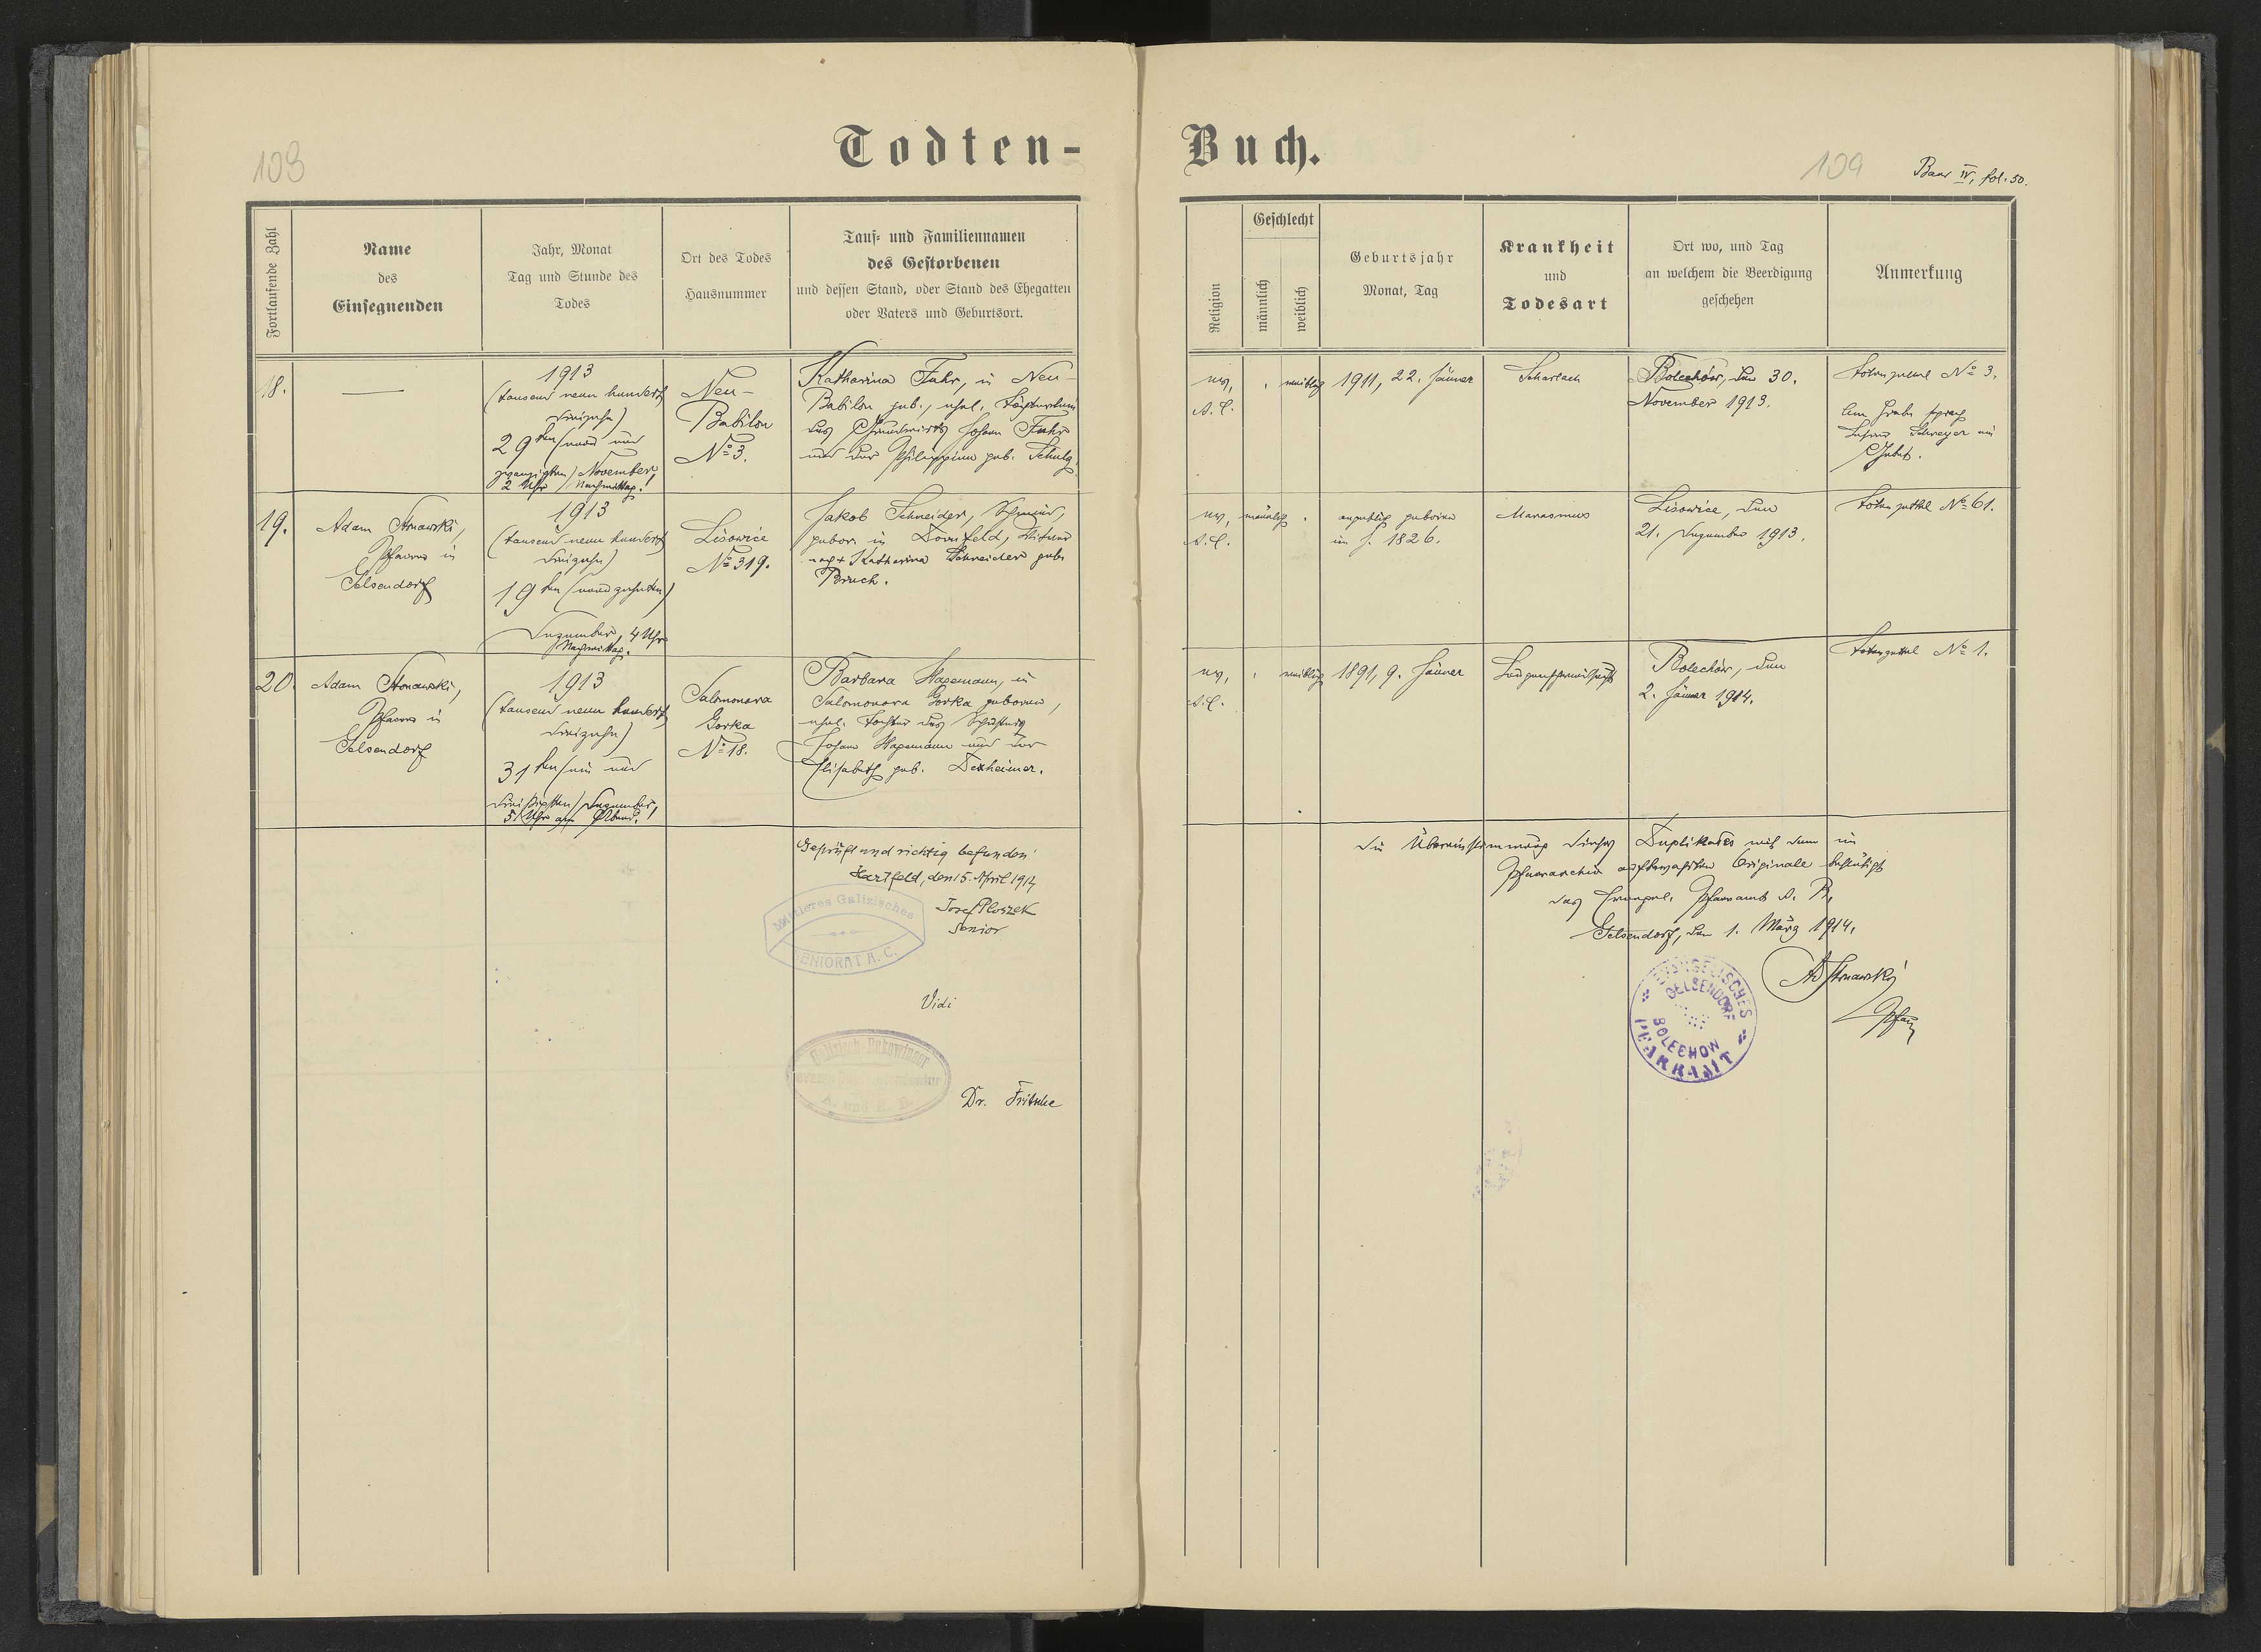 103
Todten-
Fortlaufende Zahl
Name
des
Einsegnenden
Jahr, Monat
Tag und Stunde des
Todes
Ort des Todes
Hausnummer
Tauf- und Familiennamen
des Gestorbenen
und dessen Stand, oder Stand des Ehegatten
oder Vaters und Geburtsort.
18.
1913
(tausend neun hundert
dreizehn)
29ten (neun und
zwanzigsten) November,
2 Uhr Nachmittag.
Neu-
Babilon
No 3.
Katharina Fuhr, in Neu-
Babilon geb., ehel. Töchterlein
des Grundwirts Johann Fuhr
und der Philippine geb. Schulz.
19.
Adam Stonawski,
Pfarrer in
Gelsendorf
1913
(tausend neun hundert
dreizehn)
19ten (neunzehnten)
Dezember, 4 Uhr
Nachmittag.
Lisowice
No 319.
Jakob Schneider, Schmied,
gebor. in Dornfeld, Witwer
nach + Katharina Schneider geb.
Bruch.
20.
Adam Stonawski,
Pfarrer in
Gelsendorf
1913
(tausend neun hundert
dreizehn)
31ten (ein und
dreißigsten) Dezember,
5 Uhr am Abend.
Salomonowa
Gorka
No 18.
Barbara Hagemann, in
Salomonowa Gorka geboren,
ehel. Tochter des Schusters
Johann Hagemann und der
Elisabeth geb. Dexheimer.
Geprüft und richtig befunden
Hartfeld, den 15. April 1914
Josef Ploszek
Senior
Mittleres Galizisches
SENIORAT A. C.
Vidi
Galizisch-Bukowinaer
A. und H. B.
Dr. Fritsche
Buch.
109
Band IV, fol. 50.
Religion
Geschlecht
männlich
weiblich
Geburtsjahr
Monat, Tag
Krankheit
und
Todesart
Ort wo, und Tag
an welchem die Beerdigung
geschehen
Anmerkung
ev.
A.C.
weiblich
1911, 22. Jänner
Scharlach
Bolechów, den 30.
November 1913.
Totenzettel No 3.
Am Grabe sprach
Lehrer Schreyer ein
Gebet.
ev.
A.C.
männlich
angeblich geboren
im J. 1826.
Marasmus
Lisowice, den
21. Dezember 1913.
Totenzettel No 61.
ev.
A.C.
weiblich
1891, 9. Jänner
Lungenschwindsucht
Bolechów, den
2. Jänner 1914.
Totenzettel No 1.
Die Übereinstimmung dieses Duplikates mit dem im
Pfarrarchiv aufbewahrten Originale bestätigt
das Evangel. Pfarramt A. B.
Gelsendorf, den 1. März 1914.
EVANGELISCHES
GELSENDORF
BOLECHOW
PFARRAMT
AdStonawski
Pfarr